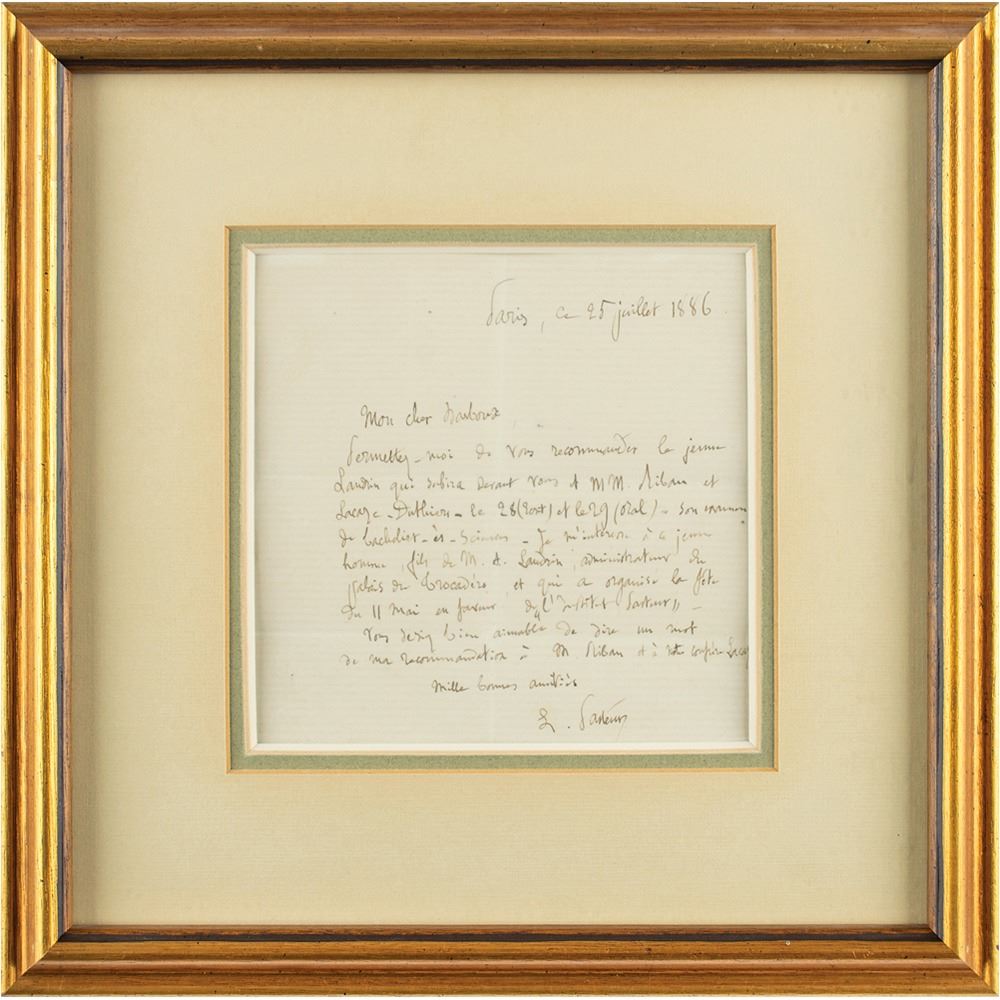 Paris, ce 25 juillet 1886
Mon cher Darboux,
Permettez-moi de vous recommander le jeune
Landrin qui subira devant vous et MM. Riban et
Lacaze-Duthiers - le 28 (écrit) et le 29 (oral) - son examen
de bachelier-ès-Sciences - Je m'intéresse à ce jeune
homme, fils de M. A. Landrin, administrateur du
palais du Trocadéro, et qui a organisé la fête
du 11 Mai en faveur de "l'Institut Pasteur" -
Vous seriez bien aimable de dire un mot
de ma recommandation à M. Riban et à notre confrère Lacaze
Mille bonnes amitiés
L. Pasteur